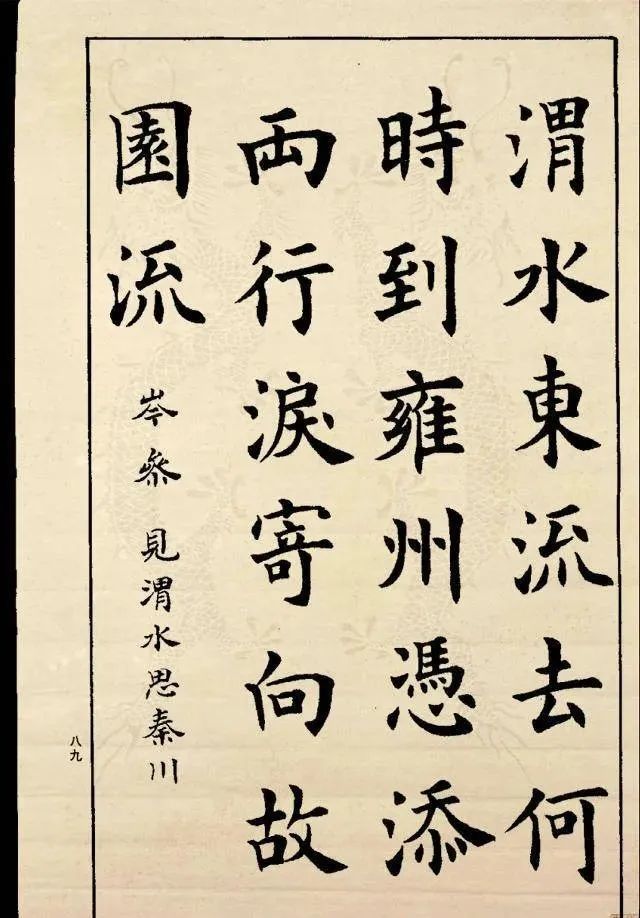 渭水東流去何
時到雍州憑添
両行淚寄向故
園流
岑參 見渭水思秦川
八九